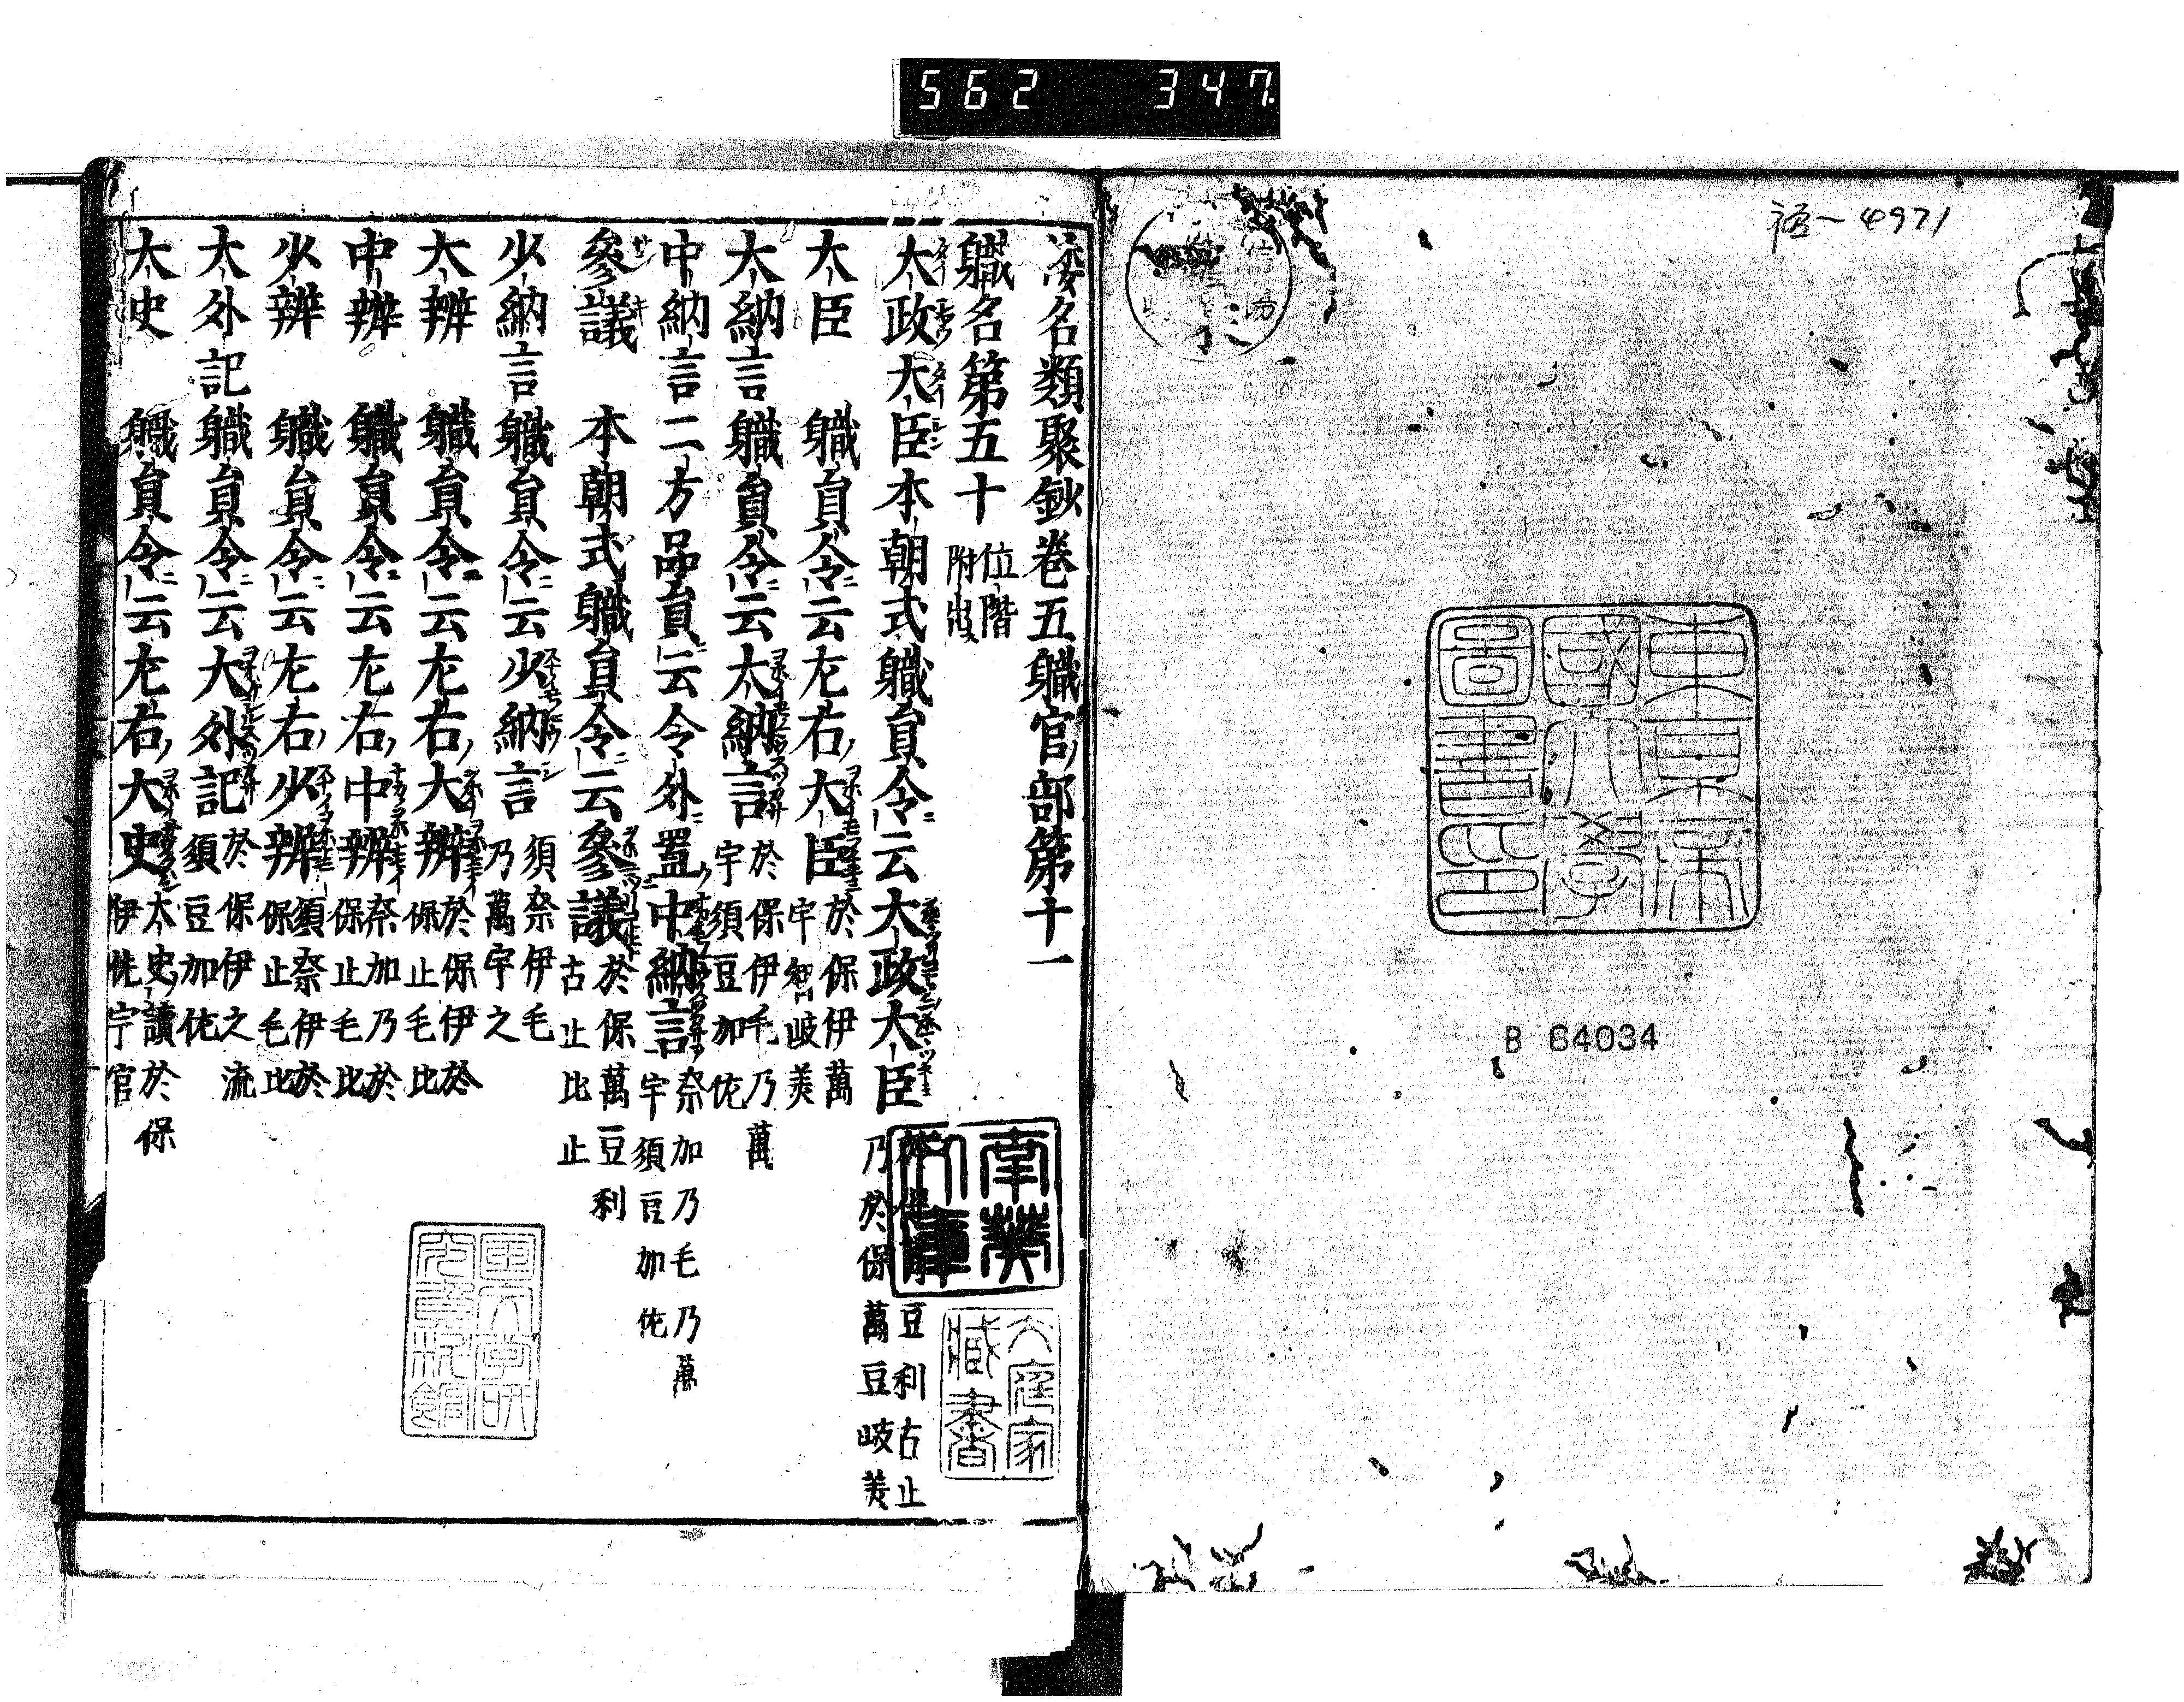 562 347
B 64034
倭名類聚鈔卷五職官部第十一
職名第五十 位階附出
太政大臣 本朝式職員令云太政大臣 於保萬豆利古止乃於保萬豆岐美
大臣 職員令云左右大臣 於保伊萬宇智岐美
大納言 職員令云大納言 於保伊毛乃萬宇須豆加佐
中納言 二方品員云令外置中納言 奈加乃毛乃萬宇須豆加佐
參議 本朝式職員令云參議 於保萬豆利古止比止
少納言 職員令云少納言 須奈伊毛乃萬宇之
大辨 職員令云左右大辨 於保伊於保止毛比
中辨 職員令云左右中辨 奈加乃於保止毛比
少辨 職員令云左右少辨 須奈伊於保止毛比
大外記 職員令云大外記 於保伊之流須豆加佐
大史 職員令云左右大史 太史讀於保伊佐宇官
東京帝國大學圖書印
南葵文庫